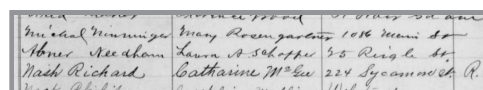 Michael Ninninger Mary Rosengardner 1086 Main St
Abner Needham Laura A Schopper 25 Ringle St.
Nash Richard Catharine McGee 224 Sycamore St. R.